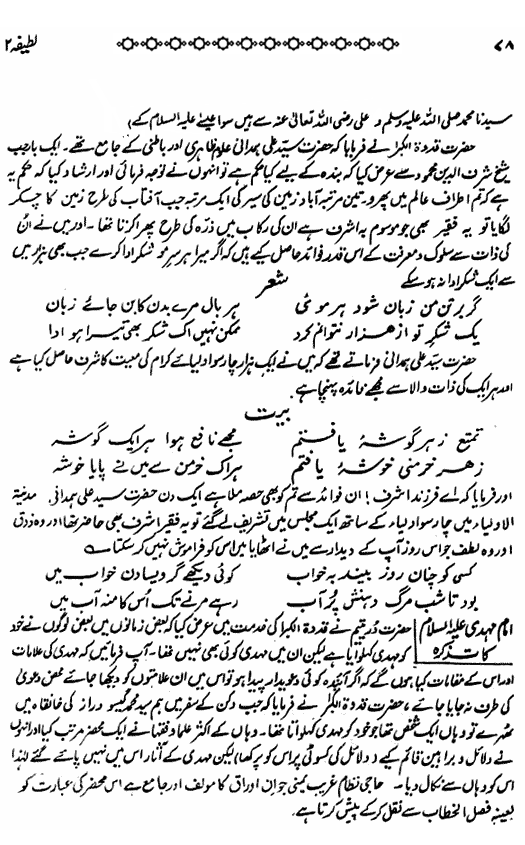 ۷۸ لطیفہ ۲
سیدنا محمد صلی اللہ علیہ وسلم و علی رضی اللہ تعالیٰ عنہ سے ہیں سوا عیسےٰ علیہ السلام کے)
حضرت قدوۃ الکبرٰ نے فرمایا کہ حضرت سید علی ہمدانی علوم ظاہری اور باطنی کے جامع تھے۔ ایک بار جب
شیخ شرف الدین محمود سے عرض کیا کہ بندہ کے لیے کیا حکم ہے تو انہوں نے توجہ فرمائی اور ارشاد کیا کہ حکم یہ
ہے کہ تم اطراف عالم میں پھرو۔ تین مرتبہ آباد زمین کی سیر کی ایک مرتبہ جب آفتاب کی طرح زمین کا چکر
لگایا تو یہ فقیر بھی جو موسوم بہ اشرف ہے ان کی رکاب میں ذرّہ کی طرح پھرا کرتا تھا۔ اور میں نے ان
کی ذات سے سلوک و معرفت کے اس قدر فوائد حاصل کیے ہیں کہ اگر میرا ہر سر مو شکر ادا کرے جب بھی ہزار میں
سے ایک شکر ادا نہ ہو سکے
شعر
گر برتن من زبان شود ہر موئی ہر بال مرے بدن کا بن جائے زبان
یک شکر تو از ہزار نتوانم کرد ممکن نہیں اک شکر بھی تیرا ہو ادا
حضرت سید علی ہمدانی فرماتے تھے کہ میں نے ایک ہزار چار سو اولیائے کرام کی معیت کا شرف حاصل کیا ہے
اور ہر ایک کی ذات والا سے مجھے فائدہ پہنچا ہے۔
بیت
تمتع ز ہر گوشۂ یافتم مجھے نافع ہوا ہر ایک گوشہ
ز ہر خرمنی خوشۂ یافتم ہر اک خرمن سے میں نے پایا خوشہ
اور فرمایا کہ اے فرزند اشرف! ان فوائد سے تم کو بھی حصہ ملا ہے ایک دن حضرت سید علی ہمدانی مدینۃ
الاولیاء میں چار سو اولیاء کے ساتھ ایک مجلس میں تشریف لے گئے تو یہ فقیر اشرف بھی حاضر تھا اور وہ ذوق
اور وہ لطف جو اس روز آپ کے دیدار سے میں نے اٹھایا میں اس کو فراموش نہیں کر سکتا
کسی کو چنان روز بیند بہ خواب کوئی دیکھے گر ویسا دن خواب میں
بود تا شب مرگ دہنش پر آب رہے مرنے تک اُس کا منہ آب میں
امام مہدی علیہ السلام کا تذکرہ
حضرت درّ یتیم نے قدوۃ الکبرا کی خدمت میں عرض کیا کہ بعض زمانوں میں بعض لوگوں نے خود
کو مہدی کہلوایا ہے لیکن ان میں مہدی کوئی بھی نہیں تھا۔ آپ فرمائیں کہ مہدی کی علامات
اور اس کے مقامات کیا ہوں گے کہ اگر آئندہ کوئی دعویدار پیدا ہو تو اس میں ان علامتوں کو دیکھا جائے محض دعویٰ
کی طرف نہ جایا جائے، حضرت قدوۃ الکبرٰ نے فرمایا کہ جب دکن کے سفر میں ہم سید محمد گیسو دراز کی خانقاہ میں
ٹھہرے تو وہاں ایک شخص تھا جو خود کو مہدی کہلواتا تھا۔ وہاں کے اکثر علماء و فقہا نے ایک محضر مرتب کیا اور انہوں
نے دلائل و براہین قائم کیے (دلائل کی کسوٹی پر اس کو پرکھا) لیکن مہدی کے آثار اس میں نہیں پائے گئے لہٰذا
اس کو وہاں سے نکال دیا۔ حاجی نظام غریب یمنی جو ان اوراق کا مولف اور جامع ہے اس محضر کی عبارت کو
بعینہٖ فصل الخطاب سے نقل کر کے پیش کرتا ہے۔